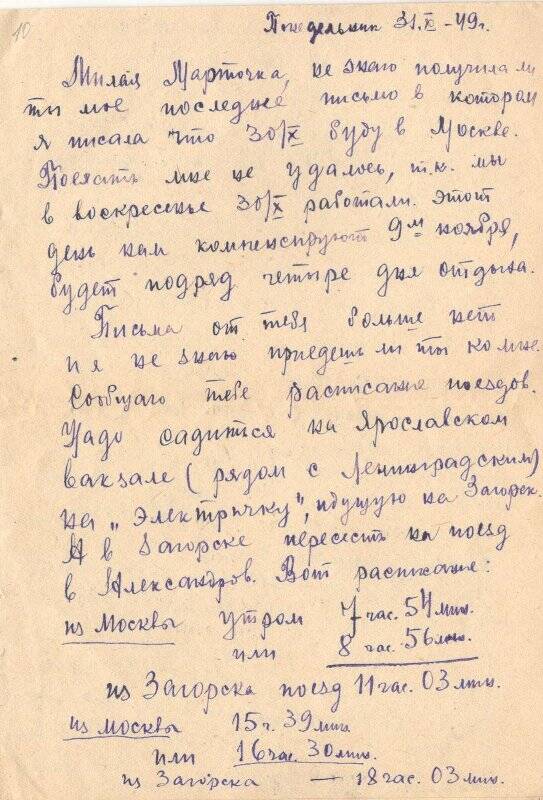 10
Понедельник 31.X -49г.
Милая Марточка, не знаю получила ли
ты мое последнее письмо в котором
я писала что 30/X буду в Москве.
Поехать мне не удалось, т.к. мы
в воскресенье 30/X работали. Этот
день нам компенсируют 9м ноября,
будет подряд четыре дня отдыха.
Письма от тебя больше нет
и я не знаю приедешь ли ты ко мне.
Сообщаю тебе расписание поездов.
Надо садится на Ярославском
вакзале (рядом с Ленинградским)
на „Электричку", идущую на Загорск.
А в Загорске пересесть на поезд
в Александров. Вот расписание:
из Москвы утром 7 час. 54 мин.
или 8 час. 56 мин.
из Загорска поезд 11 час. 03 мин.
из Москвы 15 ч. 39 мин.
или 16 час. 30 мин.
из Загорска — 18 час. 03 мин.